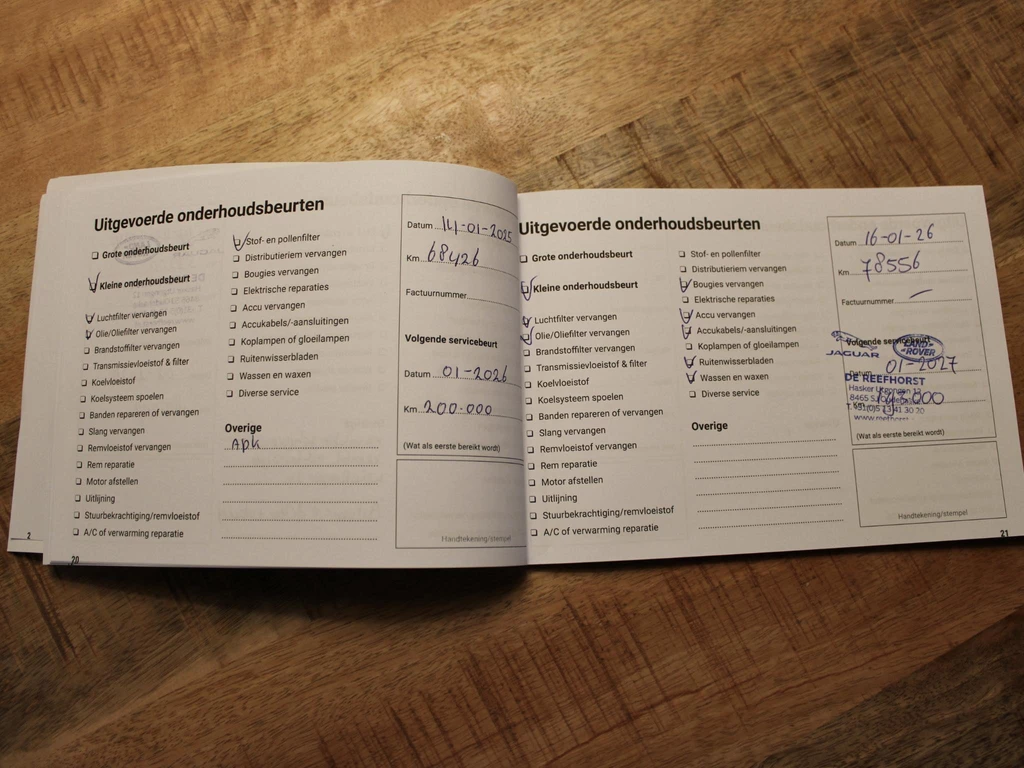 Uitgevoerde onderhoudsbeurten
❏ Grote onderhoudsbeurt
Kleine onderhoudsbeurt
Luchtfilter vervangen
Olie/Oliefilter vervangen
❏ Brandstoffilter vervangen
❏ Transmissievloeistof & filter
❏ Koelvloeistof
❏ Koelsysteem spoelen
❏ Banden repareren of vervangen
❏ Slang vervangen
❏ Remvloeistof vervangen
❏ Rem reparatie
❏ Motor afstellen
❏ Uitlijning
❏ Stuurbekrachtiging/remvloeistof
❏ A/C of verwarming reparatie
Stof- en pollenfilter
❏ Distributieriem vervangen
❏ Bougies vervangen
❏ Elektrische reparaties
❏ Accu vervangen
❏ Accukabels/-aansluitingen
❏ Koplampen of gloeilampen
❏ Ruitenwisserbladen
❏ Wassen en waxen
❏ Diverse service
Overige
Apk
Datum 14-01-2025
Km 68426
Factuurnummer
Volgende servicebeurt
Datum 01-2026
Km 200.000
(Wat als eerste bereikt wordt)
Handtekening/stempel
2
20
Uitgevoerde onderhoudsbeurten
❏ Grote onderhoudsbeurt
Kleine onderhoudsbeurt
Luchtfilter vervangen
Olie/Oliefilter vervangen
❏ Brandstoffilter vervangen
❏ Transmissievloeistof & filter
❏ Koelvloeistof
❏ Koelsysteem spoelen
❏ Banden repareren of vervangen
❏ Slang vervangen
❏ Remvloeistof vervangen
❏ Rem reparatie
❏ Motor afstellen
❏ Uitlijning
❏ Stuurbekrachtiging/remvloeistof
❏ A/C of verwarming reparatie
❏ Stof- en pollenfilter
❏ Distributieriem vervangen
Bougies vervangen
❏ Elektrische reparaties
Accu vervangen
Accukabels/-aansluitingen
❏ Koplampen of gloeilampen
Ruitenwisserbladen
Wassen en waxen
❏ Diverse service
Overige
Datum 16-01-26
Km 78556
Factuurnummer
Volgende servicebeurt
JAGUAR
LAND ROVER
Datum 01-2027
DE REEFHORST
Hasker
8465
Km
(Wat als eerste bereikt wordt)
Handtekening/stempel
21